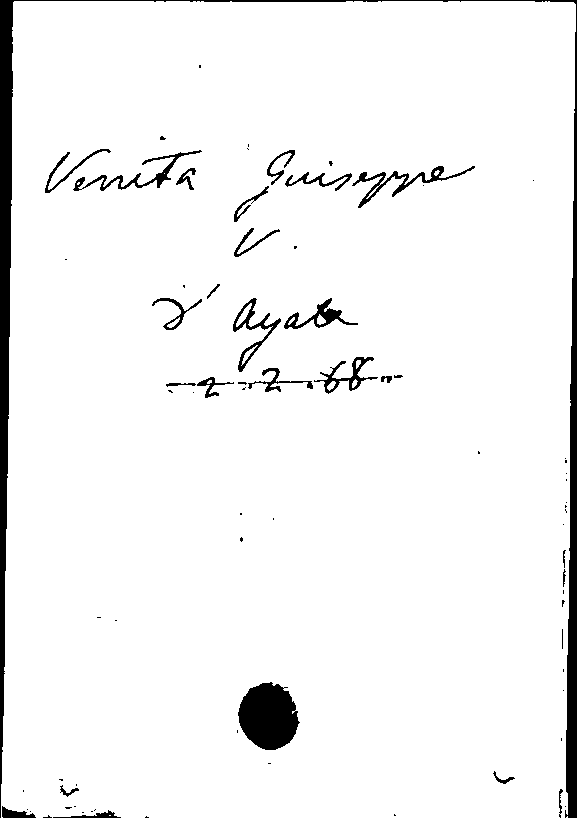 Vennita Guiseppe
V.
D'Ayala
2.2.68